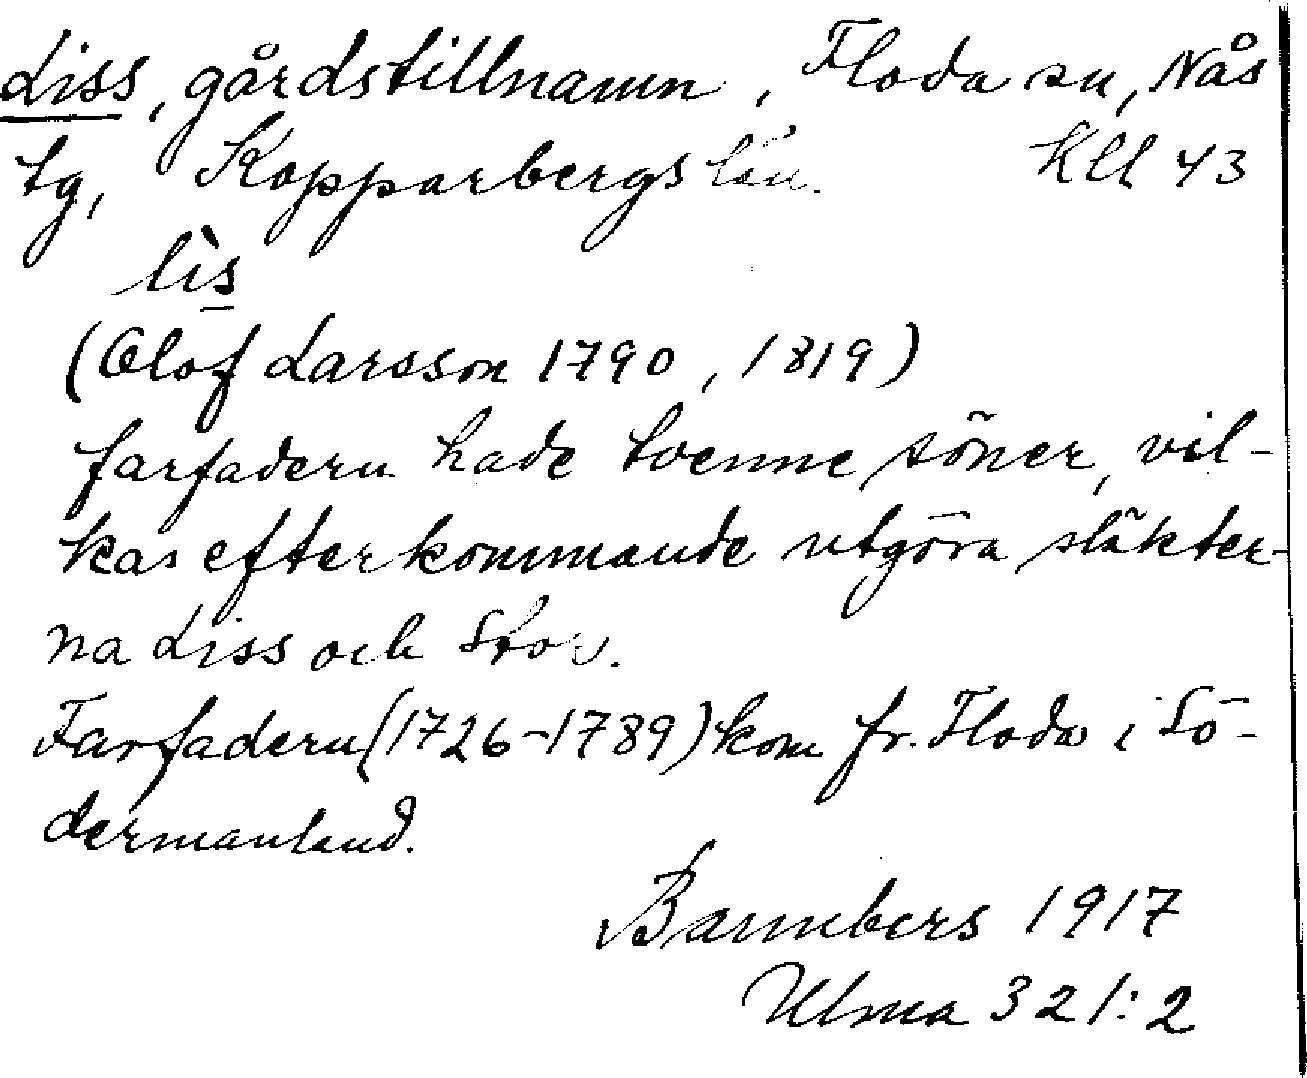 Liss, gårdstillnamn, Floda sn, Nås
tg, Kopparbergs län. KLl 43
lìs
(Olof Larsson 1790, 1819)
farfadern hade tvenne söner, vil-
kas efterkommande utgöra släkter-
na Liss och Stor.
Farfadern (1726-1789) kom fr. Floda i Sö-
dermanland.
Bannbers 1917
Ulma 321:2